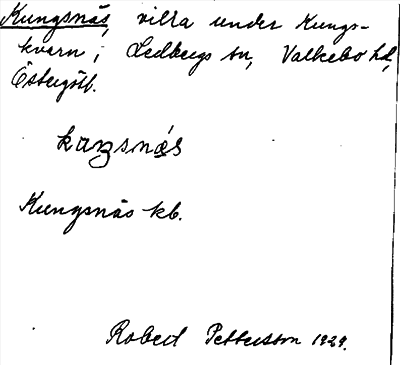 Kungsnäs, villa under Kungs-
kvarn i Ledbergs sn, Valkebo hd,
Östergötl.
Kungsnäs kb.
Robert Pettersson 1929.